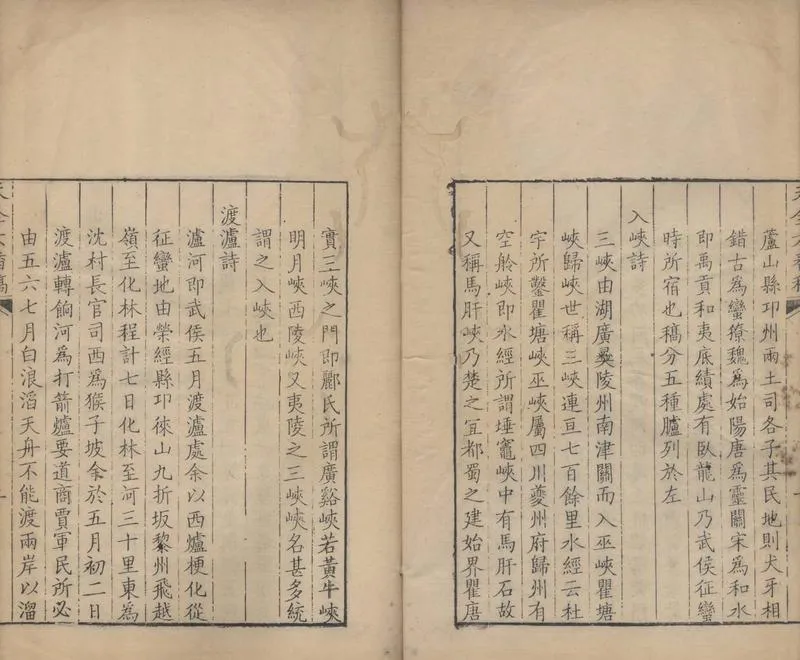 蘆山縣邛州兩土司各子其民地則犬牙相
錯古為蠻獠魏為始陽唐為靈關宋為和水
即禹貢和夷底績處有臥龍山乃武侯征蠻
時所宿也稿分五種臚列於左
入峽詩
三峽由湖廣彞陵州南津關而入巫峽瞿塘
峽歸峽世稱三峽連亘七百餘里水經云杜
宇所鑿瞿塘峽巫峽屬四川夔州府歸州有
空舲峽即水經所謂埵竈峽中有馬肝石故
又稱馬肝峽乃楚之宜都蜀之建始界瞿唐
實三峽之門即酈民所謂廣谿峽若黃牛峽
明月峽西陵峽又夷陵之三峽峽名甚多統
謂之入峽也
渡瀘詩
瀘河即武侯五月渡瀘處余以西爐梗化從
征蠻地由榮經縣邛徠山九折坂黎州飛越
嶺至化林程計七日化林至河三十里東為
沈村長官司西為猴子坡余於五月初二日
渡瀘轉餉河為打箭爐要道商賈軍民所必
由五六七月白浪滔天舟不能渡兩岸以溜